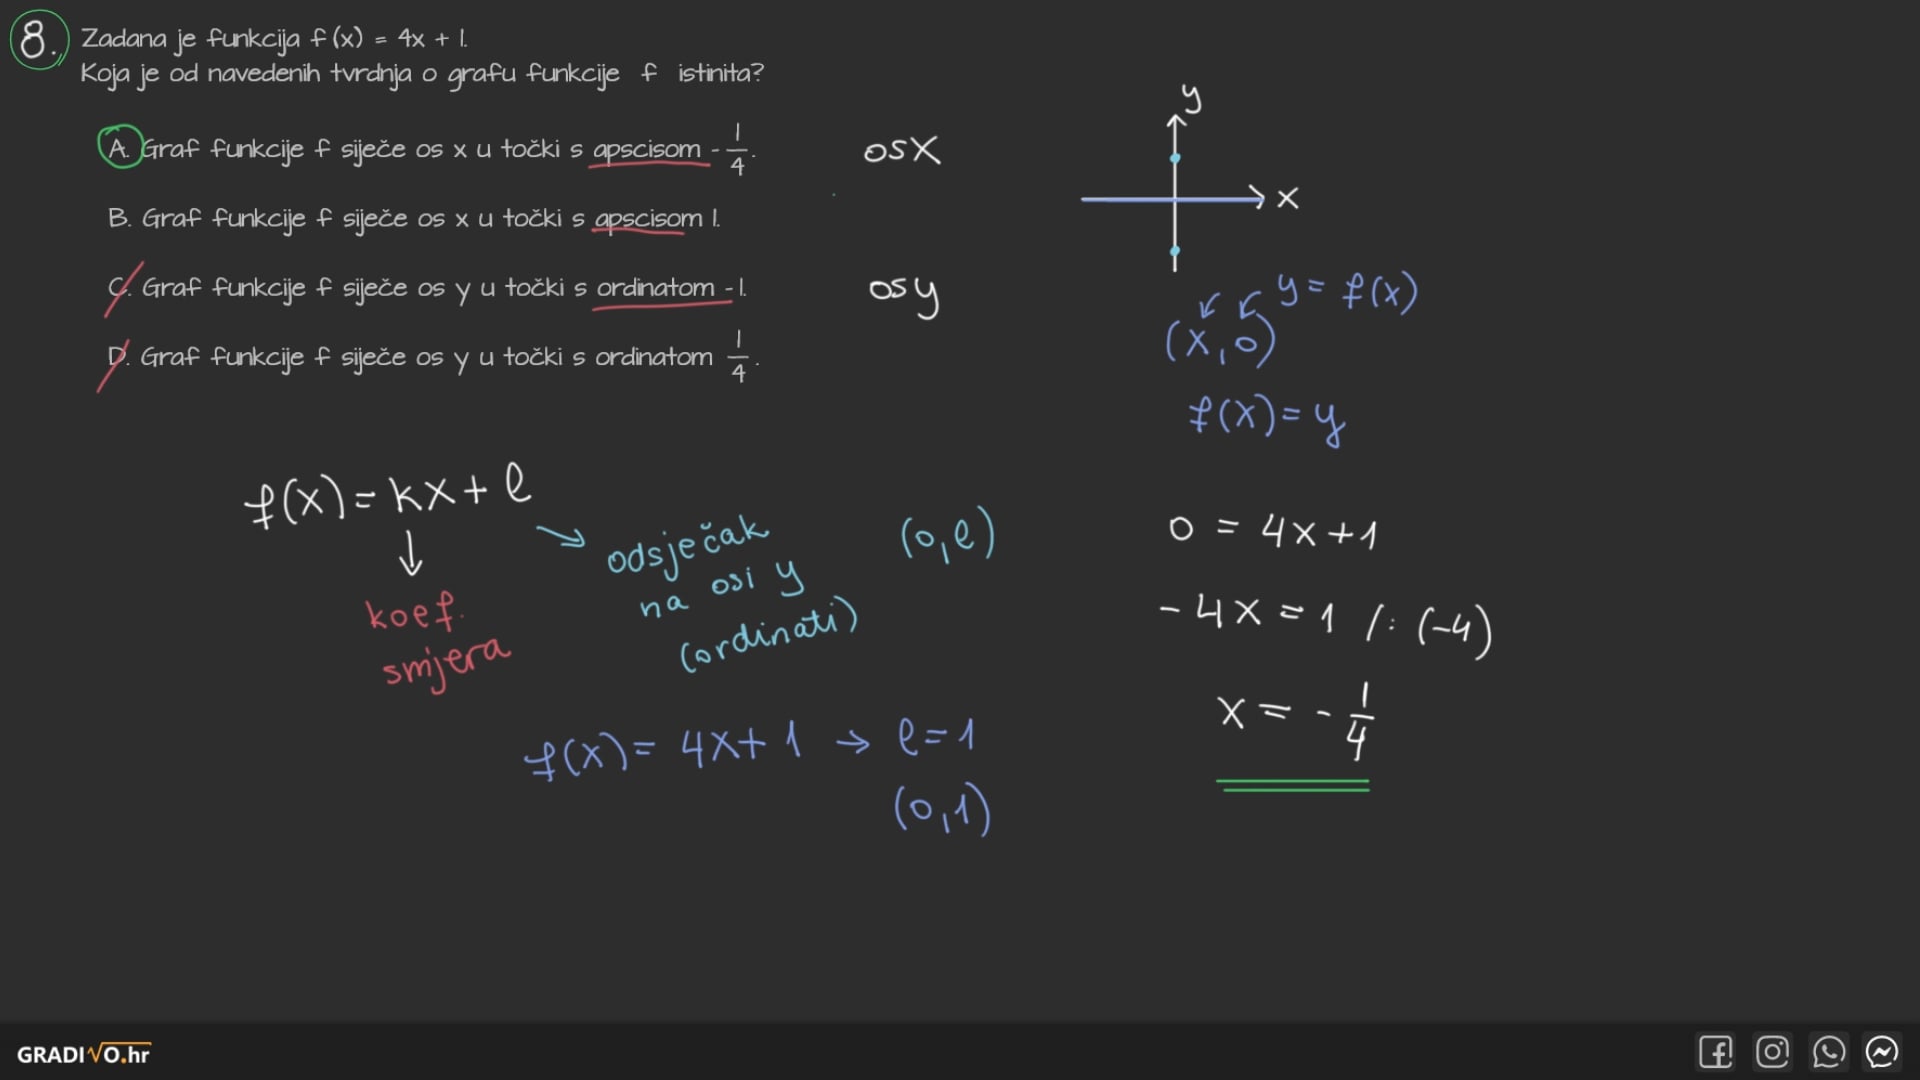 8. Zadana je funkcija f(x) = 4x + 1.
Koja je od navedenih tvrdnja o grafu funkcije f istinita?
A. Graf funkcije f siječe os x u točki s apscisom -1/4.
B. Graf funkcije f siječe os x u točki s apscisom 1.
C. Graf funkcije f siječe os y u točki s ordinatom -1.
D. Graf funkcije f siječe os y u točki s ordinatom 1/4.
os x
os y
y
x
y = f(x)
(x, 0)
f(x) = y
f(x) = kx + l
koef.
smjera
odsječak
na osi y
(ordinati)
(0, l)
f(x) = 4x + 1 → l = 1
(0, 1)
0 = 4x + 1
-4x = 1 /: (-4)
x = -1/4
GRADIVO.hr